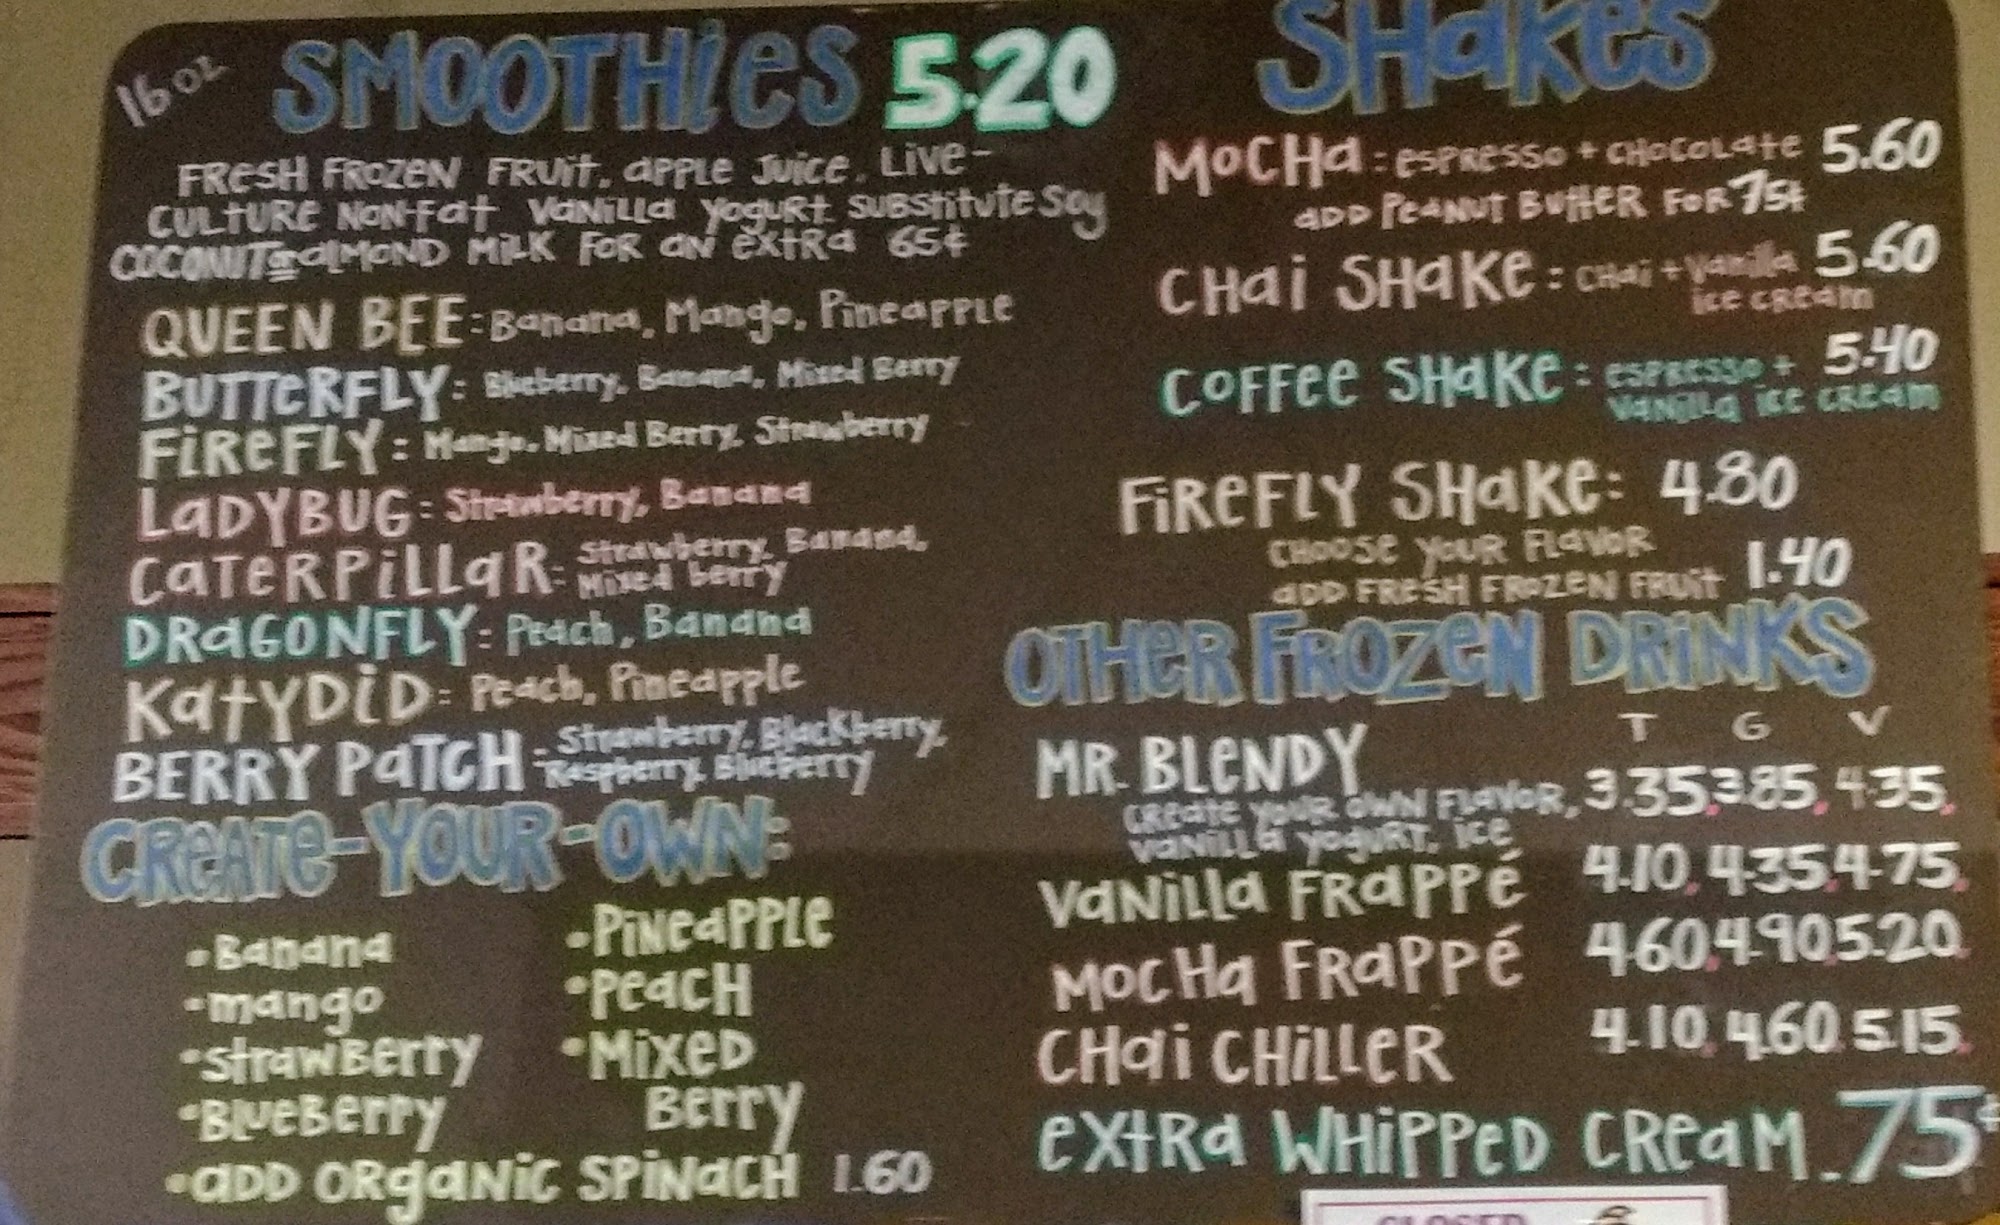 16 oz
SMOOTHIES 5.20
FRESH FROZEN FRUIT, APPLE JUICE, LIVE-
CULTURE NON-FAT VANILLA YOGURT SUBSTITUTE SOY
COCONUT or ALMOND MILK FOR AN EXTRA 65¢
QUEEN BEE: Banana, Mango, Pineapple
BUTTERFLY: Blueberry, Banana, Mixed Berry
FIREFLY: Mango, Mixed Berry, Strawberry
LADYBUG: Strawberry, Banana
CATERPILLAR: Strawberry, Banana,
Mixed berry
DRAGONFLY: Peach, Banana
KATYDID: Peach, Pineapple
BERRY PATCH - Strawberry, Blackberry,
Raspberry, Blueberry
CREATE-YOUR-OWN:
•Banana
•mango
•Strawberry
•Blueberry
•Pineapple
•Peach
•Mixed
Berry
•ADD ORGANIC SPINACH 1.60
SHAKES
MOCHA: ESPRESSO + CHOCOLATE 5.60
ADD PEANUT BUTTER FOR 75¢
CHAI SHAKE: CHAI + Vanilla 5.60
ICE CREAM
COFFEE SHAKE: ESPRESSO + 5.40
VANILLA ICE CREAM
FIREFLY SHAKE: 4.80
CHOOSE YOUR FLAVOR
ADD FRESH FROZEN FRUIT 1.40
OTHER FROZEN DRINKS
T G V
MR. BLENDY
CREATE YOUR OWN FLAVOR, 3.35, 3.85, 4.35,
VANILLA YOGURT, ICE
VANILLA FRAPPÉ 4.10, 4.35, 4.75,
MOCHA FRAPPÉ 4.60, 4.90, 5.20,
CHAI CHILLER 4.10, 4.60, 5.15,
EXTRA WHIPPED CREAM .75¢
CLOSED